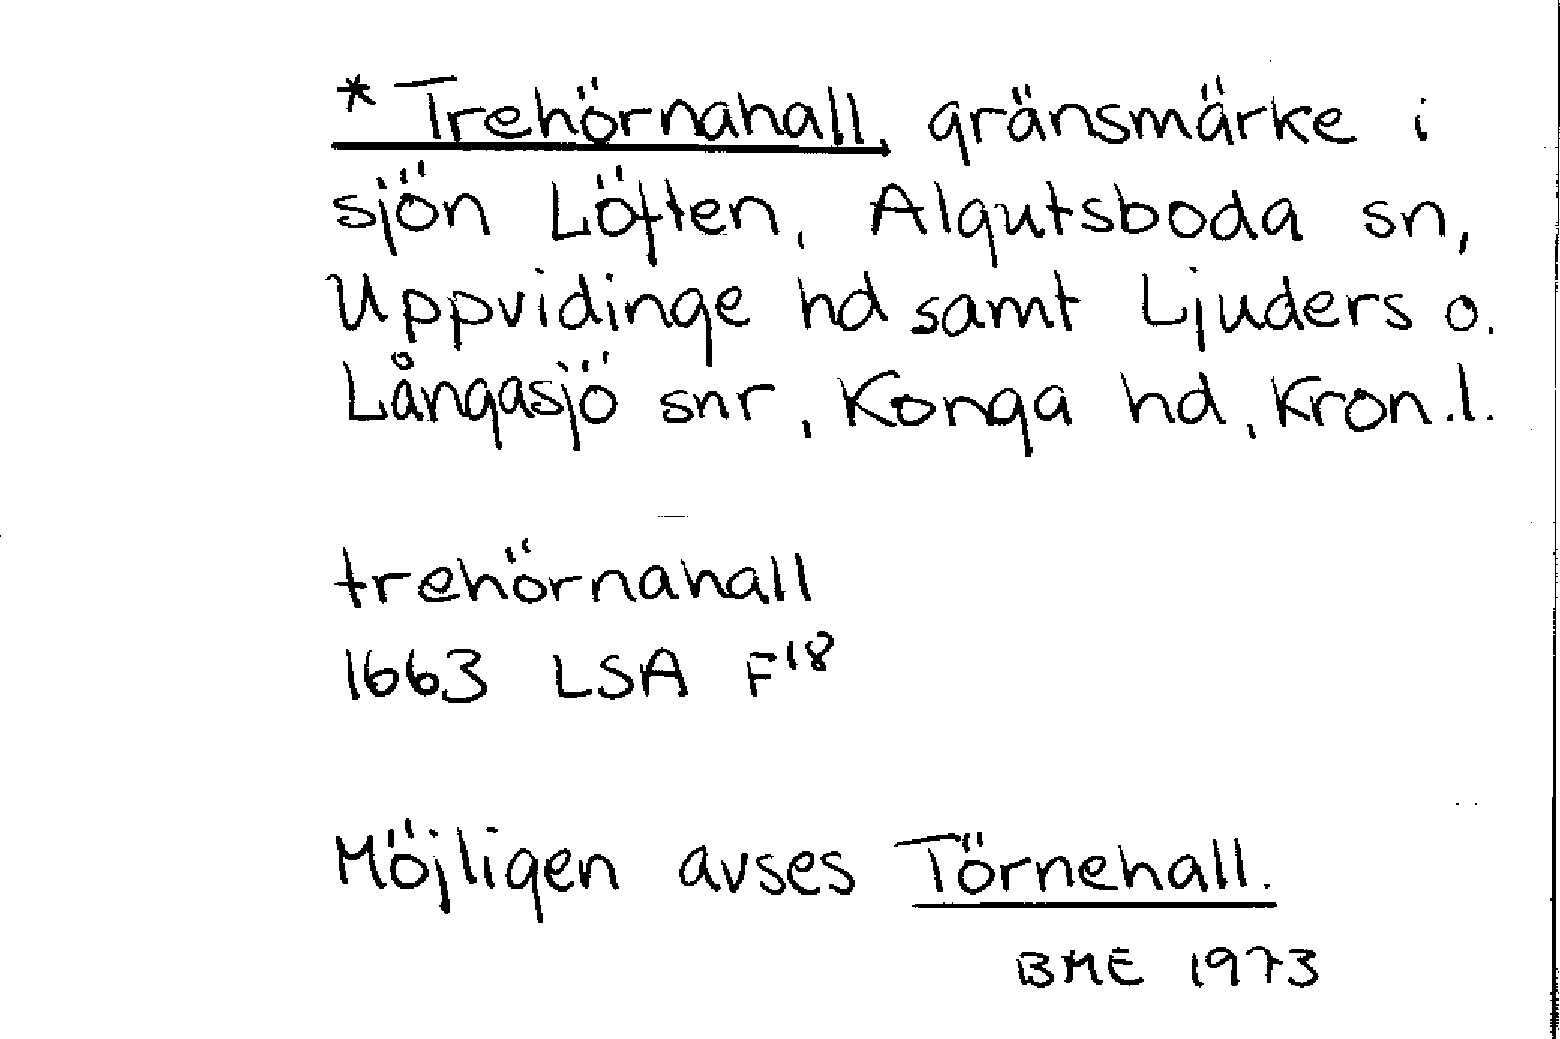 * Trehörnahall, gränsmärke i
sjön Löften, Algutsboda sn,
Uppvidinge hd samt Ljuders o.
Långasjö snr, Konga hd, Kron.l.
trehörnahall
1663 LSA F18
Möjligen avses Törnehall.
BME 1973